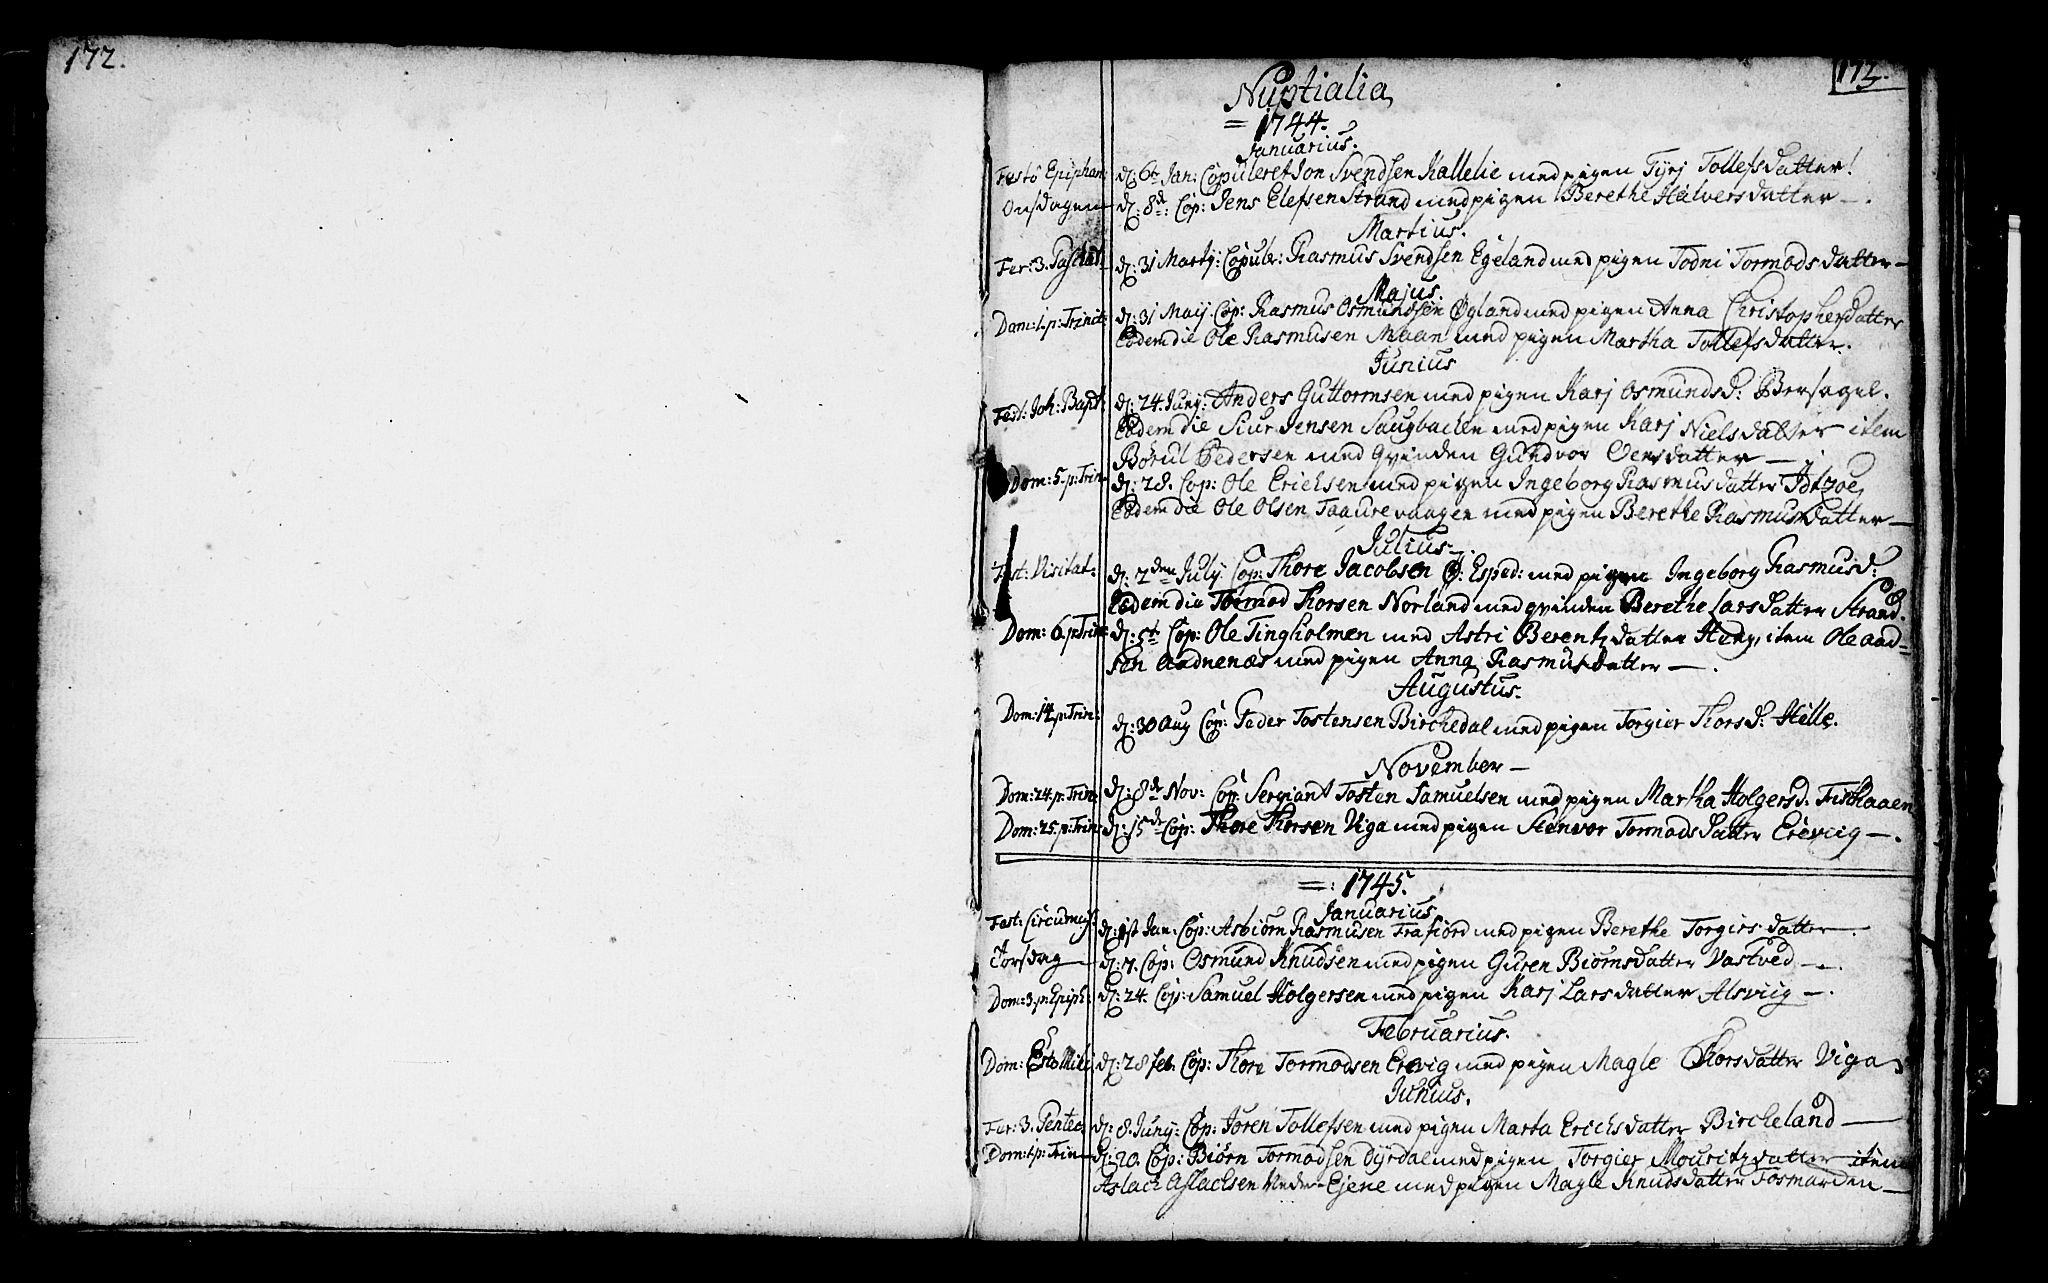 172.
173.
Nuptialia
= 1744.
Januarius.
Festo Epiphan: d: 6t Jan: Copuleret Jon Svendsen Kallelie med pigen Tyrj Tollefsdatter!
Onsdagen d: 8de: Cop: Jens Elefsen Strand med pigen Berethe Halversdatter — .
Martius.
Fer: 3. Paschat: d: 31 Martij: Copuler: Rasmus Svendsen Egeland med pigen Todni Tormodsdatter —
Majus.
Dom: 1. p: Trinit: d: 31 Maij Cop: Rasmus Osmundsen Øgland med pigen Anna Christophersdatter
Eodem die Ole Rasmusen Maan med pigen Martha Tollefsdatter.
Junius
Fest: Joh: Bapt: d: 24. Junij: Anders Guttormsen med pigen Karj Osmundsd: Bersagel.
Eodem die Siur Jensen Saugbachen med pigen Karj Nielsdatter item
Børul Pedersen med Qvinden Gundvor Oensdatter — .
Dom: 5. p: Trin: d: 28. Cop: Ole Erichsen med pigen Ingeborg Rasmusdatter Idtzøe,
Eodem die Ole Olsen Taadrevaagen med pigen Berethe Rasmusdatter —
Julius —
Fest: Visitat: d: 2den July Cop: Thore Jacobsen Ø: Esped: med pigen Ingeborg Rasmusd:
Eodem die Tormod Thorsen Norland med qvinden Berethe Larsdatter Strand.
Dom: 6. p: Trin: d: 5t Cop: Ole Tingholmen med Astri Berentzdatter Heng, item Ole aad=
sen Aadnenæs med pigen Anna Rasmusdatter — .
Augustus.
Dom: 14. p: Trin: d: 30 Aug Cop: Peder Tostensen Birchedal med pigen Torgier Thorsd: Helle.
November —
Dom: 24. p: Trin: d: 8de Nov: Cop: Sergiant Tosten Samuelsen med pigen Martha Holgersd.
Dom: 25. p: Trin: d: 15de Cop: Thore Thorsen Viga med pigen Stenvor Tormodsdatter Erevig — .
=: 1745.
Januarius
Fest: Circumcis: d: 1st Jan: Cop: Asbiørn Rasmusen Frafiord med pigen Berethe Torgiersdatter — .
Torsdag — d: 7. Cop: Osmund Knudsen med pigen Guren Biørnsdatter Vastved — .
Dom: 3. p: Epiph: d: 24. Cop: Samuel Holgersen med pigen Karj Larsdatter Alsviig — .
Februarius.
Dom: Esto Mihi d: 28 feb. Cop: Thore Tormodsen Erevig med pigen Magle Thorsdatter Viga
Junius.
Fer: 3. Pentec: d: 8. Junij: Cop: Joren Tollefsen med pigen Marta Erichsdatter Bircheland —
Dom: 1. p: Trin — d: 20. Cop: Biørn Tormodsen Dyrdal med pigen Torgier Mouritzdatter item
Aslach Aslachsen Nedre Ejene med pigen Magle Knudsdatter Fosmarden —